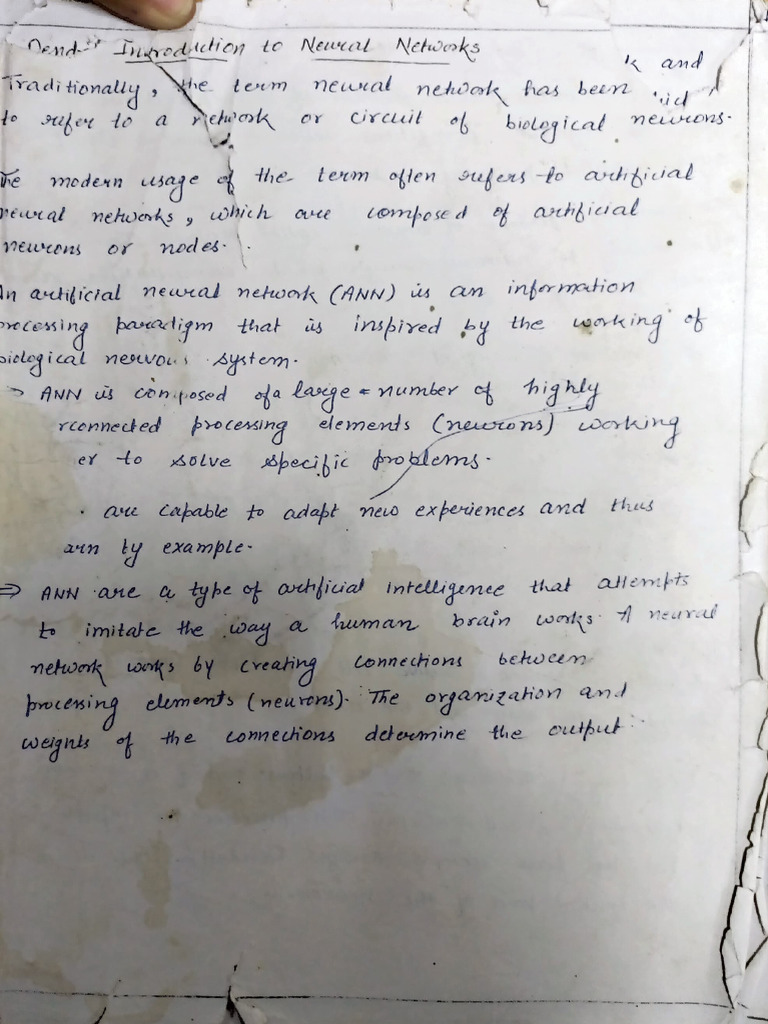 Introduction to Neural Networks
and
Traditionally, the term neural network has been
to refer to a network or circuit of biological neurons.
modern usage of the term often refers to artificial
neural networks, which are composed of artificial
neurons or nodes.
An artificial neural network (ANN) is an information
processing paradigm that is inspired by the working of
biological nervous system.
→ ANN is composed of a large number of highly
rconnected processing elements (neurons) working
er to solve specific problems.
are capable to adapt new experiences and thus
arn by example.
⇒ ANN are a type of artificial intelligence that attempts
to imitate the way a human brain works. A neural
network works by creating connections between
processing elements (neurons). The organization and
weights of the connections determine the output.